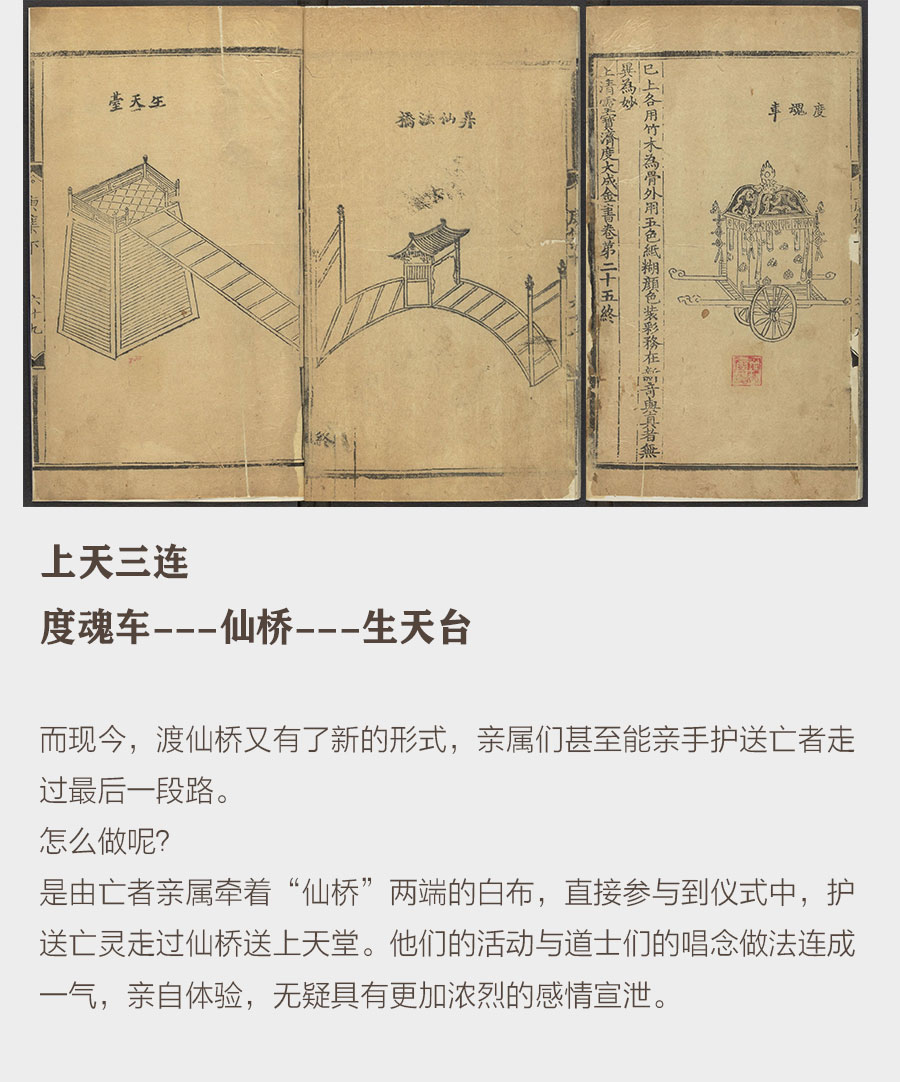 度魂車
已上各用竹木為骨外用五色紙糊顔色装彩務在新奇與真者無
異為妙
上清靈寶濟度大成金書卷第二十五終
昇仙法橋
生天臺
六十九
上天三连
度魂车---仙桥---生天台
而现今，渡仙桥又有了新的形式，亲属们甚至能亲手护送亡者走
过最后一段路。
怎么做呢？
是由亡者亲属牵着“仙桥”两端的白布，直接参与到仪式中，护
送亡灵走过仙桥送上天堂。他们的活动与道士们的唱念做法连成
一气，亲自体验，无疑具有更加浓烈的感情宣泄。